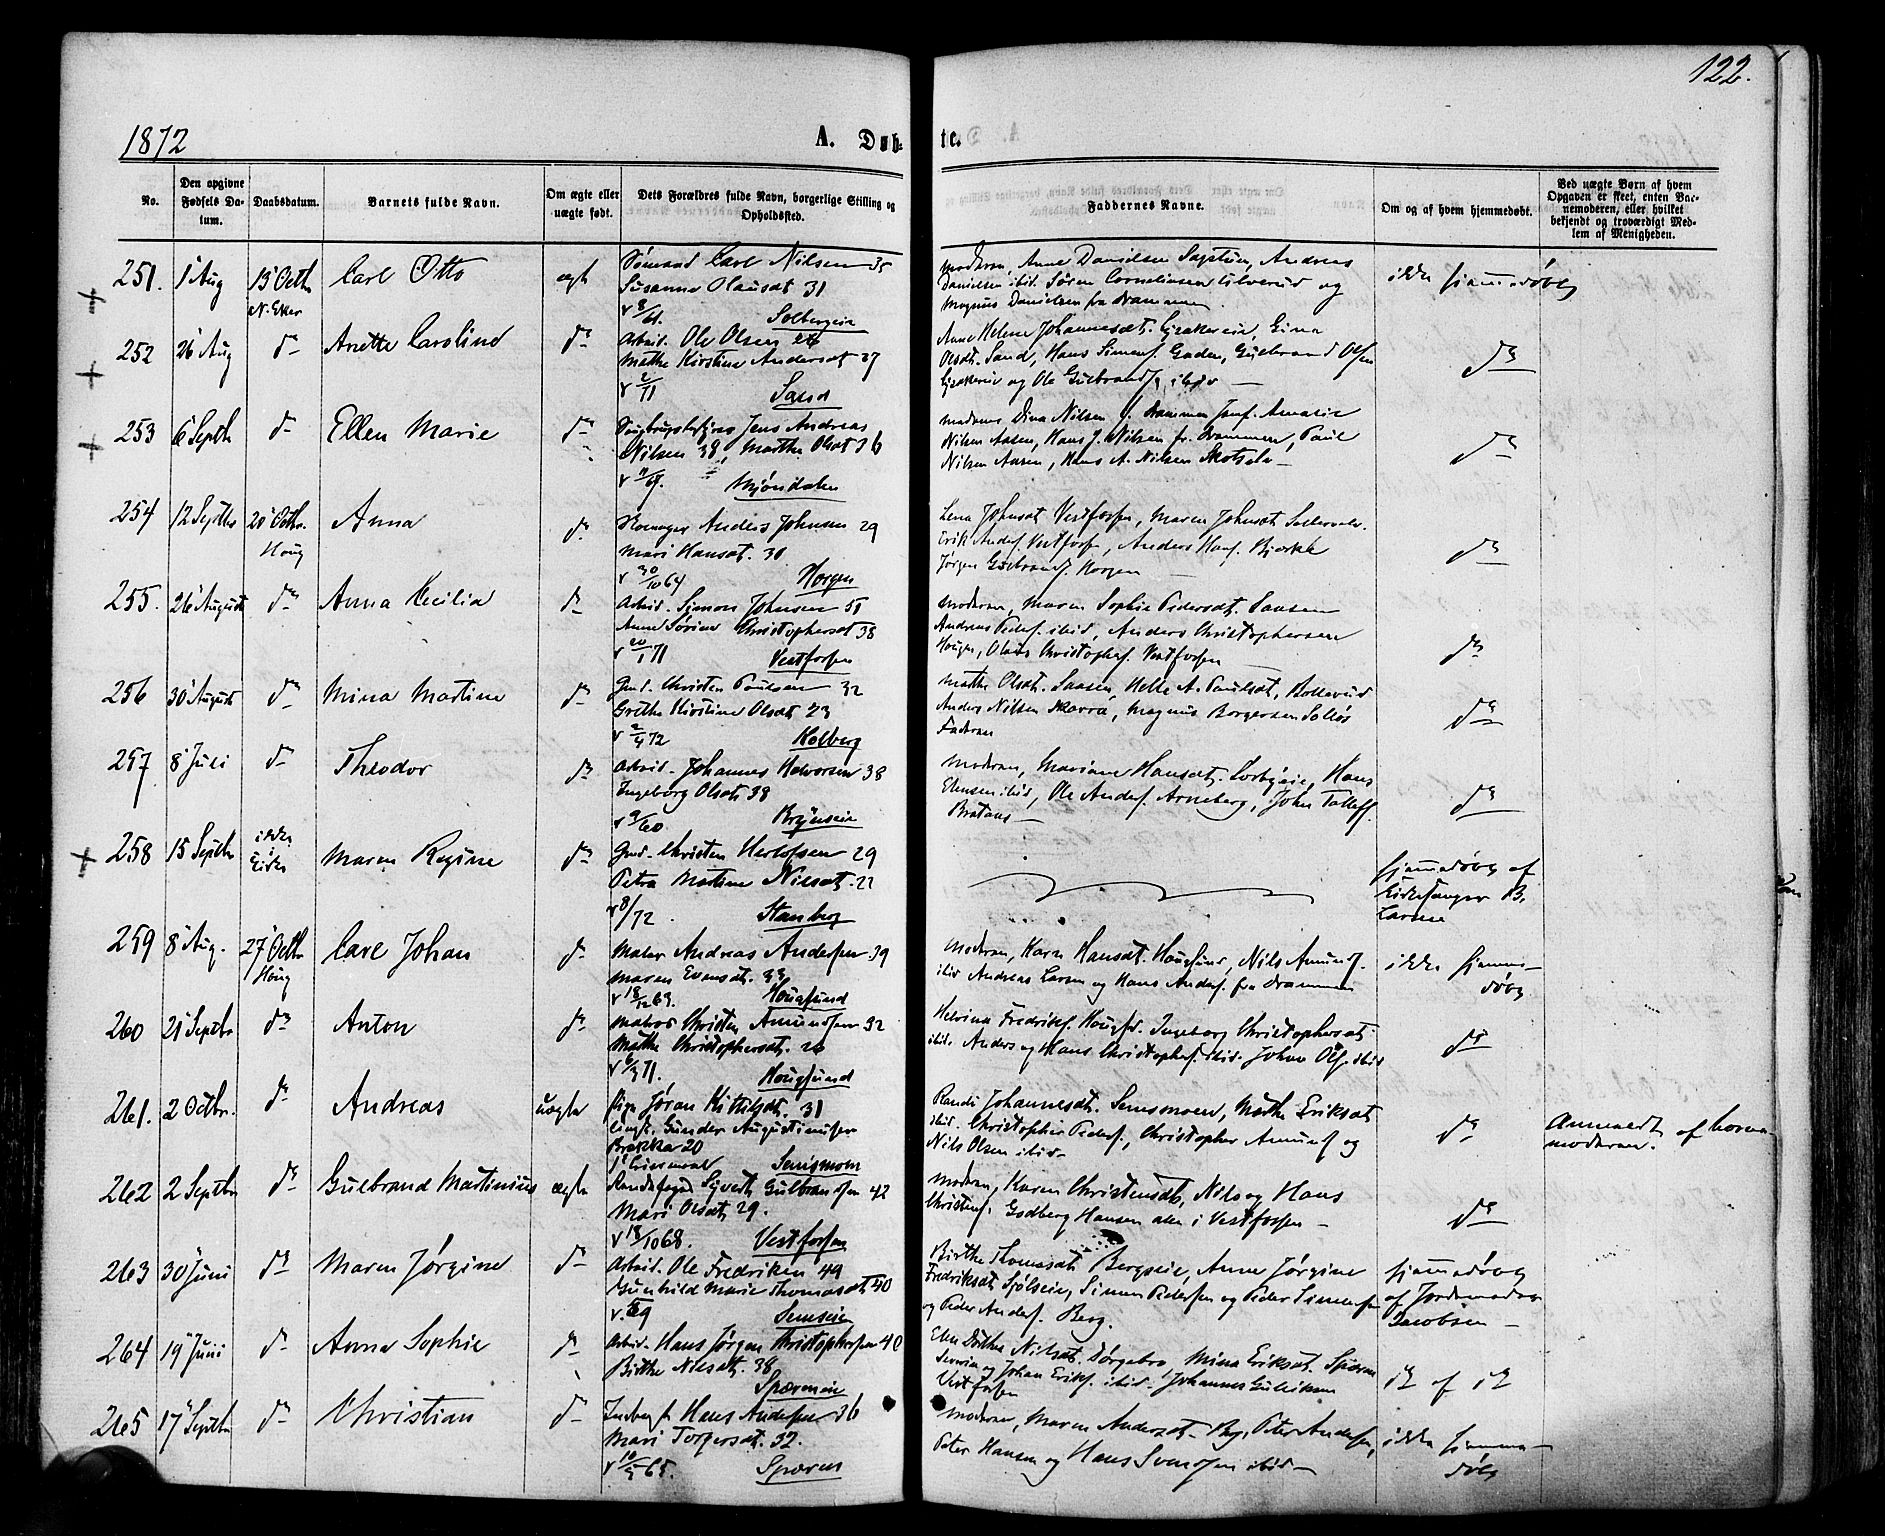 122.
1872
A. Døb-
te.
No.
Den opgivne Fødsels Da-tum.
Daabsdatum.
Barnets fulde Navn.
Om ægte eller uægte født.
Dets Forældres fulde Navn, borgerlige Stilling og Opholdssted.
Faddernes Navne.
Om og af hvem hjemmedøbt.
Ved uægte Børn af hvem Opgaven er skeet, enten Bar-nemoderen, eller hvilket bekjendt og troværdigt Med-lem af Menigheden.
251. 1 Aug 13 Octb Carl Otto ægte Sømand Carl Nilsen 35
N. Eker Susanne Olausdt 31
Solbergeie
Moderen, Anne Danielsen Andreas
Danielsen ibid. Søren Corneliussen og
Magnus Danielsen fra Drammen
ikke hjemmedøbt
252 26 Aug do Anette Caroline do Arbeid. Ole Olsen 26
Mathe Kirstine Andersdt 37
2/11 Sand
Anne Helene Johannesdt. Gina
Olsdt. Sand, Hans Simens. Gulbrand Olsen
og Ole Gulbrands. ibid
do
253 6 Septb do Ellen Marie do Jens Andreas
Nilsen 38, Marthe Olsdt 36
Mjøndalen
Moderen Dina Nilsen f. Drammen Jomf. Amalie
Nilsen Aasen, Hans J. Nilsen fr. Drammen, Paul
Nilsen Aasen, Hans A. Nilsen Skotselv
do
254 12 Septbr 20 Octbr. Anna do Anders Johnsen 29
Houg Mari Hansdt. 30
30/10 64 Horgen
Lena Johnsdt Vestfossen, Maren Johnsdt
Erik Anders. Vestfossen, Anders Hans. Bjerke
Jørgen Gulbrands. Horgen
do
255. 26 August do Anna Cecilia do Arbeid. Simon Johnsen 51
Anne Sørine Christophersdt 38
20/1 71 Vestfossen
Moderen, Maren Sophie Pedersdt. Saasen
Andreas Peders. ibid, Anders Christophersen
Hougen, Olaus Christophs. Vestfossen
do
256 30 August do Mina Martine do Gmd. Christen Paulsen 32
Grethe Kirstine Olsdt 23
2/4 72 Kolberg
Mathe Olsdt. Saasen, Helle A. Paulsdt, Bollerud
Anders Nilsen Skarra, Magnus Borgersen
Faderen
do
257 8 Juli do Theodor do Arbeid. Johannes Halvorsen 38
Ingeborg Olsdt 38
9/60 Brynseie
Moderen, Mariane Hansdt. Hans
Ellensen ibid, Ole Anders. Arneberg, John Tollefs.
Brataas
do
258 15 Septbr ikke i Kirke Maren Regine do Gmd. Christen Herlofsen 29
Petra Martine Nilsdt. 22
8/72 Stenberg
hjemmedøbt af
Kirkesanger B.
Larsen
259 8 Aug. 27 Octbr Carl Johan do Maler Andreas Andersen 39
Houg Maren Evensdt. 33
18/12 63. Hougsund
Moderen, Karn Hansdt. Hougsund, Nils Amunds.
ibid Andreas Larsen og Hans Anders. fra Drammen
ikke hjemme-
døbt
260 21 Septbr do Anton do Matros Christen Amundsen 32
Mathe Christophersdt. 26
6/3 71. Hougsund
Helvina Fredriks. Hougsd. Ingeborg Christophersdt
ibid. Anders og Hans Christophs. ibid. Johan Ols. ibid
do
261. 2 Octbr. do Andreas uægte Pige Jøran Kittilsdt. 31
Ungk. Gunder Augustinusen
Brække 20
Semsmoen
Randi Johannesdt. Semsmoen, Mathe Eriksdt
ibid. Christopher Peders., Christopher Amunds og
Nils Olsen ibid
do
Anmeldt af Barne-
moderen.
262 2 Septbr do Gulbrand Martinius ægte Syvert Gulbrandsen 42
Mari Olsdt 29.
18/10 68. Vestfossen
Moderen, Karen Christensdt, Nils og Hans
Christens. Godberg Hansen alle i Vestfossen
do
263 30 Juni do Maren Jørgine do Arbeid. Ole Fredriksen 49
Gunhild Marie Thomasdt 40
Semseie
Birthe Thomasdt Bergseie, Anne Jørgine
Fredriksdt Sjølseie, Simen Pedersen og Peder Simensen
og Peder Anders. Berg.
hjemmedøbt
af Jordemoder
Jacobsen
264 19 Juni do Anna Sophie do Arbeid. Hans Jørgen Christophersen 40
Birthe Nilsdt. 38
Sparreseie
Elen Dorthea Nilsdt Dørgebro, Mina Eriksdt. Sparren
Severin og Johan Eriks. ibid. Johannes Gulliksen
Vestfossen
id af id
265 17 Septbr do Christian do Indbg. f. Hans Andersen 36
Mari Torgersdt. 32.
10/5 65. Sparren
Moderen, Maren Andersdt. By, Peter Andersen,
Peter Hansen og Hans Svendsen ibid
ikke hjemme-
døbt